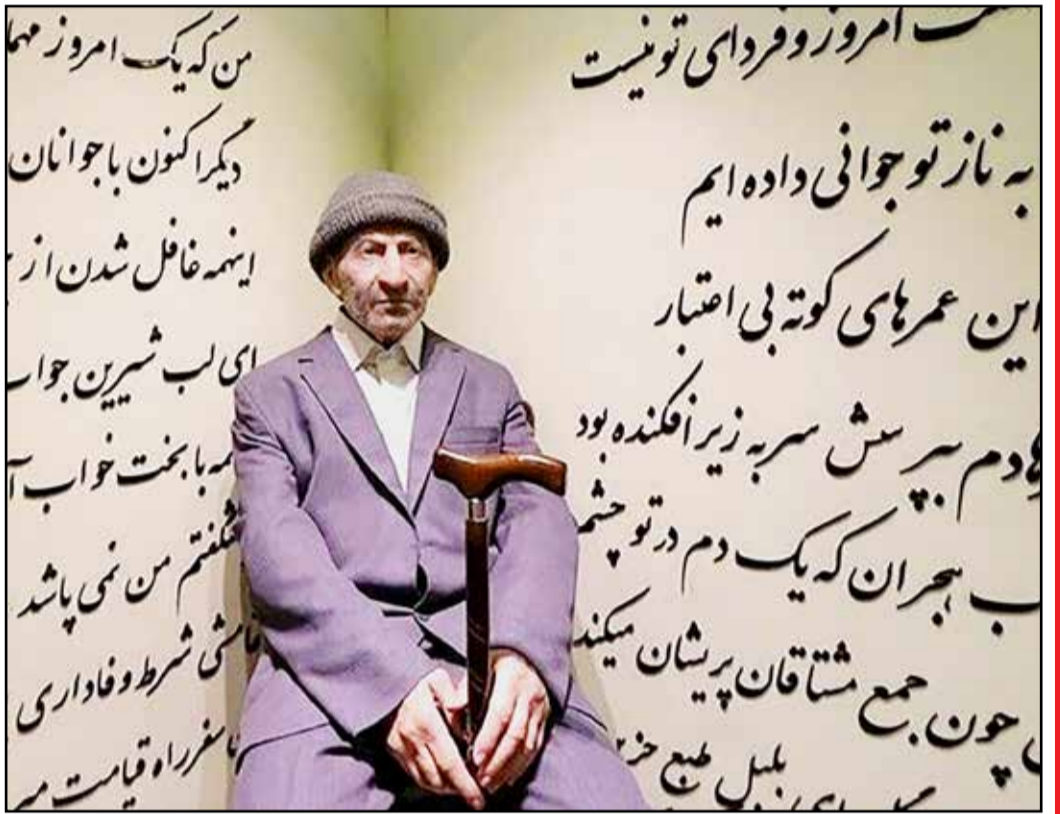 امروز و فردای تو نیست
به ناز تو جوانی داده ایم
این عمرهای کوته بی اعتبار
بپرسش سر به زیر افکنده بود
هجران که یک دم در تو چشم
چون جمع مشتاقان پریشان میکند
بلبل طبع
من که یک امروز
دیگر اکنون با جوانان
اینهمه غافل شدن از
ای لب شیرین جواب
با بخت خواب
من نمی پاشد
شرط وفاداری
سفر راه قیامت